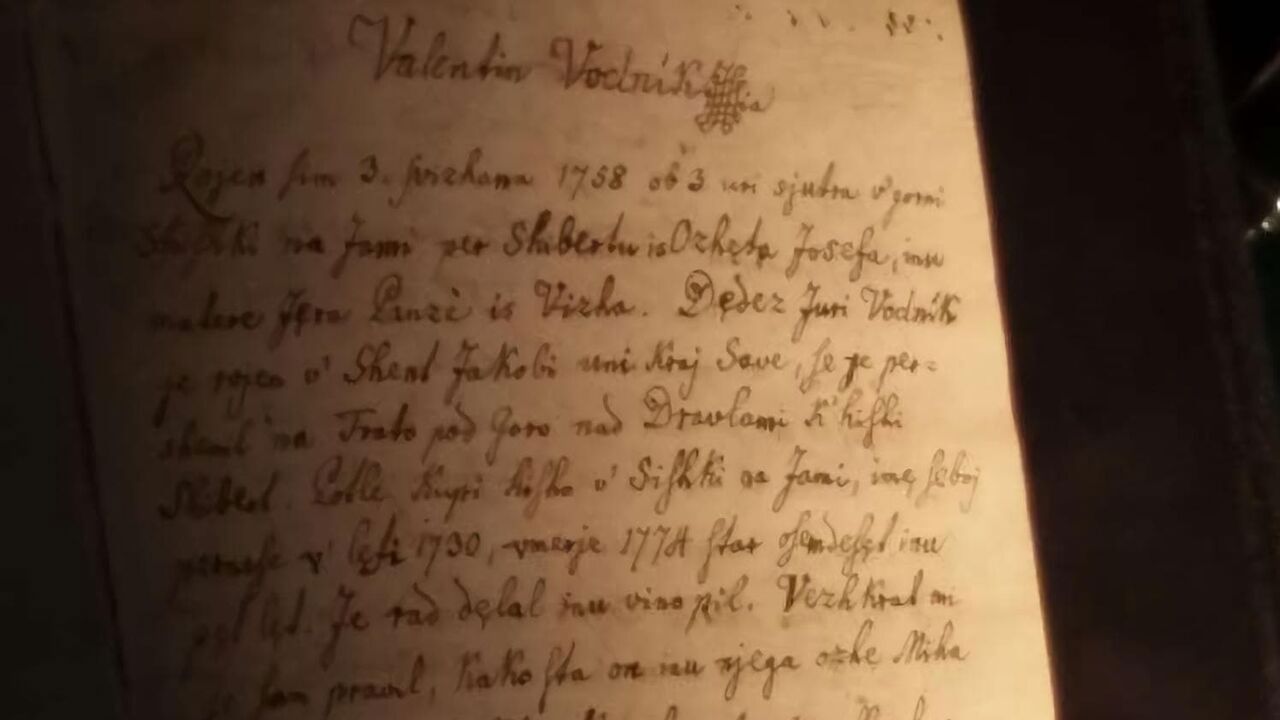 Valentin Vodnik
Rojen ſim 3. ſvizhana 1758 ob 3 uri sjutra v' gorni
Shishki na Jami per Shibertu is Ozhęta Josefa, inu
matere Jęra Panze is Vizha. Dędez Juri Vodnik
je rojen v' Shent Jakobi uni kraj Save, ſe je per=
shenil na Trato pod Goro nad Dravlami k' hiſhi
Shibert. Potle kupi hiſho v' Siſhki na Jami, imę ſęboj
parneſe v' lęti 1730, vmerje 1774 ſtar oſemdeſęt inu
pęt lęt. Je rad dęlal inu vino pil. Vezhkrat mi
je ſam pravil, kako ſta on inu njega ozhe Miha